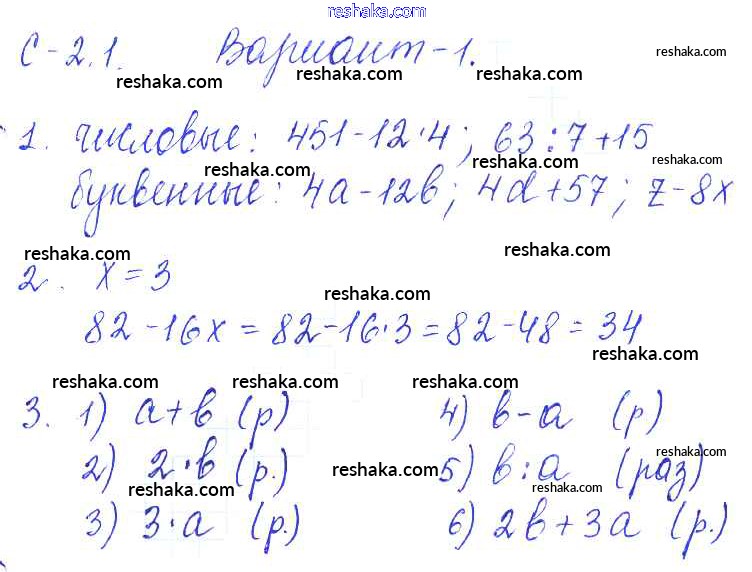 reshaka.com
С-2.1. Вариант-1.
reshaka.com reshaka.com reshaka.com
1. числовые: 451-12·4; 63:7+15
reshaka.com reshaka.com reshaka.com
буквенные: 4a-12b; 4d+57; z-8x
reshaka.com reshaka.com
2. x=3
reshaka.com
82-16x=82-16·3=82-48=34
reshaka.com
reshaka.com reshaka.com reshaka.com
3. 1) a+b (р) 4) b-a (р)
reshaka.com reshaka.com
2) 2·b (р.) 5) b:a (раз)
reshaka.com reshaka.com
3) 3·a (р.) 6) 2b+3a (р.)